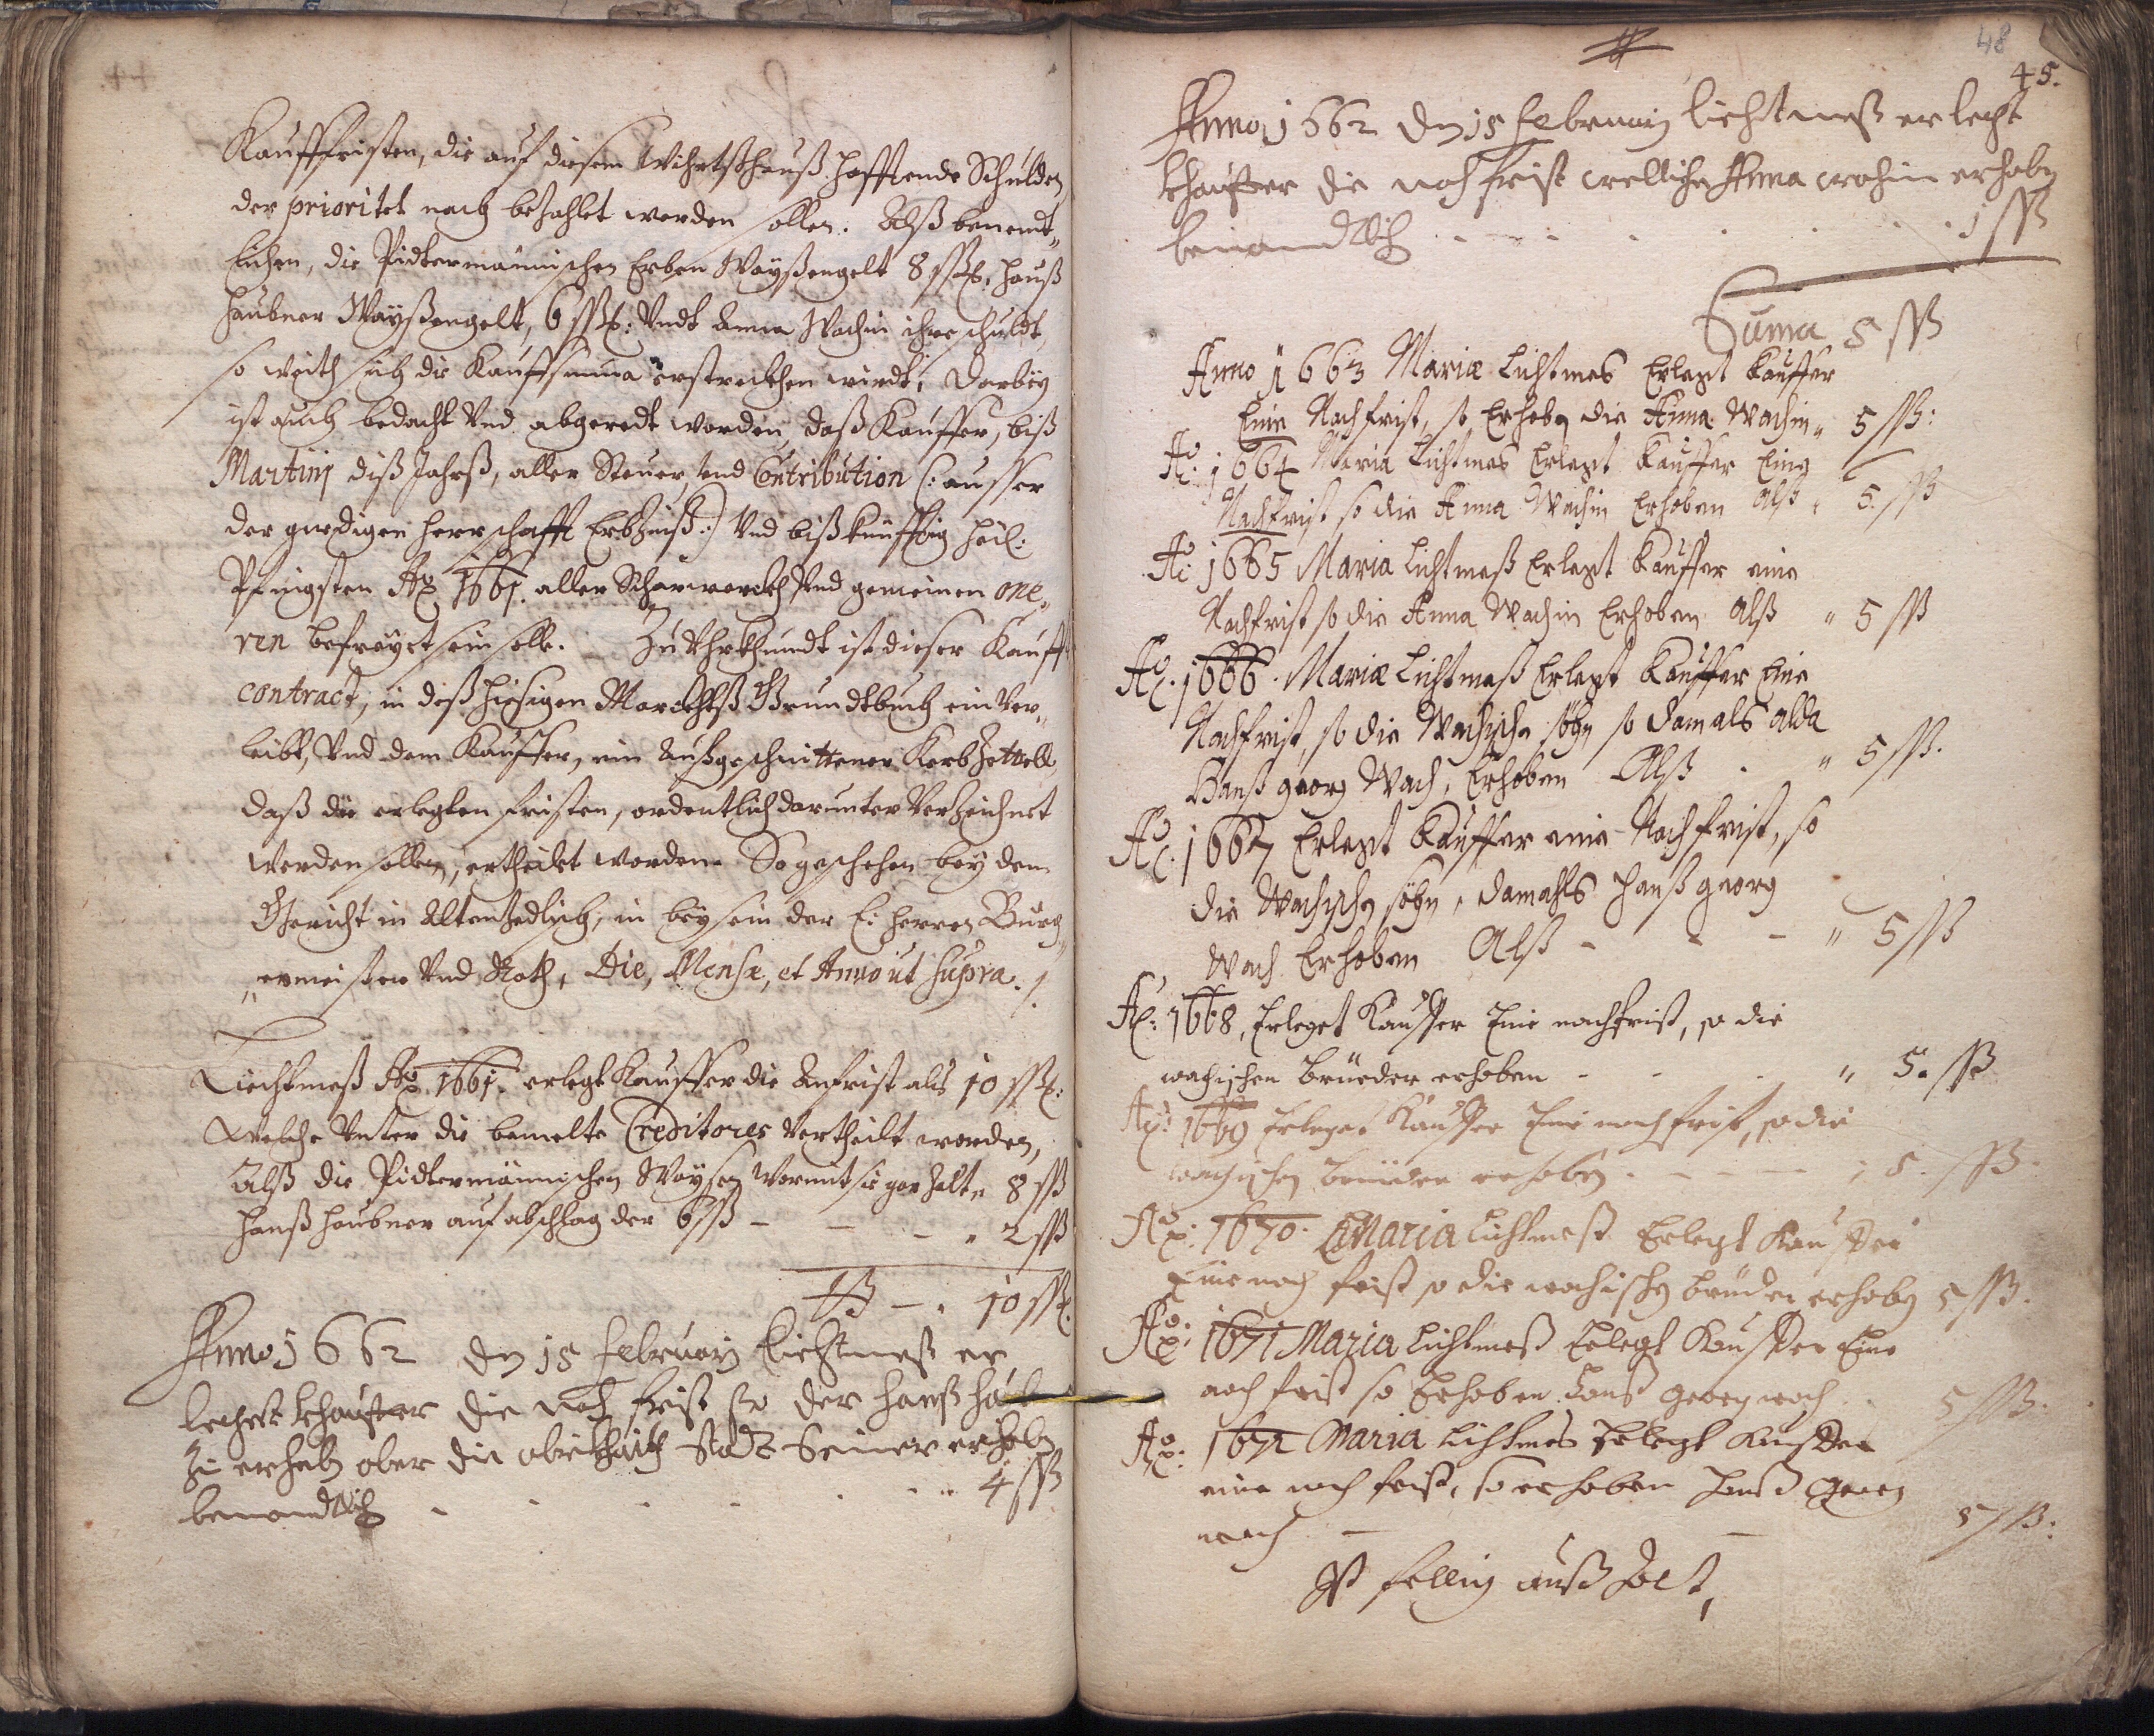 Kauffristen, die auf diesem Wihrtßhauß hafftende Schulden
der prioritet nach bezahlet werden sollen. Alß benendt„
lichen, die Pidtermännischen Erben Wayßengelt 8 ßß. Hanß
Haubner Wayßengelt, 6 ßß: Undt Anna Wachin ihre schuldt,
so weith sich die Kauffsumma erstreckhen wirdt, Darbey
ist auch bedacht Und abgeredt worden, daß Kauffer, biß
Martinj diß Jahrß, aller Steuer, und Contribution (: ausser
der gnedigen Herrschafft Erbzinß :) Und biß künfftig heil:
Pfingsten Ao 1661. aller Scharwerckh Und gemeinen one„
ren befreyet sein solle. Zu Uhrkhundt ist dieser Kauff
contract, in deß hiesigen Marckhtß Grundtbuch einver„
leibt, Und dem Kauffer, ein Außgeschnittener Kerbzettell
daß die erlegten fristen, ordentlich darunter Verzeichnet
werden sollen, ertheilet worden. So geschehen bey dem
Gericht in Altenzedlisch, in beysein der E: Herren Burg
„ermeister Und Rath, Die, Mense, et Anno ut supra.
Liechtmeß Ao 1661. erlegt Kauffer die Anfrist als 10 ßß:
Welche Unter die bemelte Creditores Vertheilt worden,
Alß die Pidtermännischen Waysen Wormit sie gar zalt „ 8 ßß
Hanß Haubner auf abschlag der 6 ßß – – – „ 2 ßß
– „ 10 ßß.
Anno 1662 den 15 Februarij Liechtmeß er
leget Khauffer die nach frist so der Hanß
zu erheben aber die obrikhaith statt Seiner erhoben
benandtlich . . . . . . „ 4 ßß
48
45.
Anno 1662 den 15 Februarij Liechtmeß erlegt
Khauffer die nach frist welliche Anna wachin erhoben
benandtlich . . . . . . . 1 ßß
Suma 5 ßß
Anno 1663 Mariæ Lichtmes Erlegt Kauffer
Eine Nachfrist, so Erhoben die Anna Wachin „ 5 ßß:
Ao: 1664 Maria Lichtmes Erlegt Kauffer Eine
Nachfrist so die Anna Wachin Erhoben Alß „ 5 ßß
Ao: 1665 Maria Lichtmeß Erlegt Kauffer eine
Nachfrist so die Anna Wachin Erhoben Alß „ 5 ßß
Ao. 1666. Mariæ Lichtmeß Erlegt Kauffer Eine
Nachfrist, so die Wachische söhn so damals alda
Hanß georg Wach, Erhoben Alß . „ 5 ßß.
Ao. 1667 Erlegt Kauffer eine Nachfrist, so
die Wachischen söhn, damahls Hanß georg
Wach Erhoben Alß – – – „ 5 ßß
Ao: 1668, Erleget Kauffer Eine nachfrist, so die
wachischen Brüeder erhoben – – . „ 5. ßß
Ao: 1669 Erleget Kauffer Eine nachfrist, so die
wachischen brüeder erhoben . – – – ; 5. ßß.
Ao: 1670. Maria Lichtmeß Erlegt Kauffer
Eine nach frist so die wachischen brüder erhoben 5 ßß.
Ao: 1671 Maria Lichtmeß Erlegt Kauffer Eine
nach frist so Erhoben Hanß Georg wach . . 5 ßß.
Ao: 1672 Maria Lichtmes Erlegt Kauffer
eine nach frist, so erhoben Hanß Georg
wach – – 5 ßß:
Ist fellig auß Zalt,